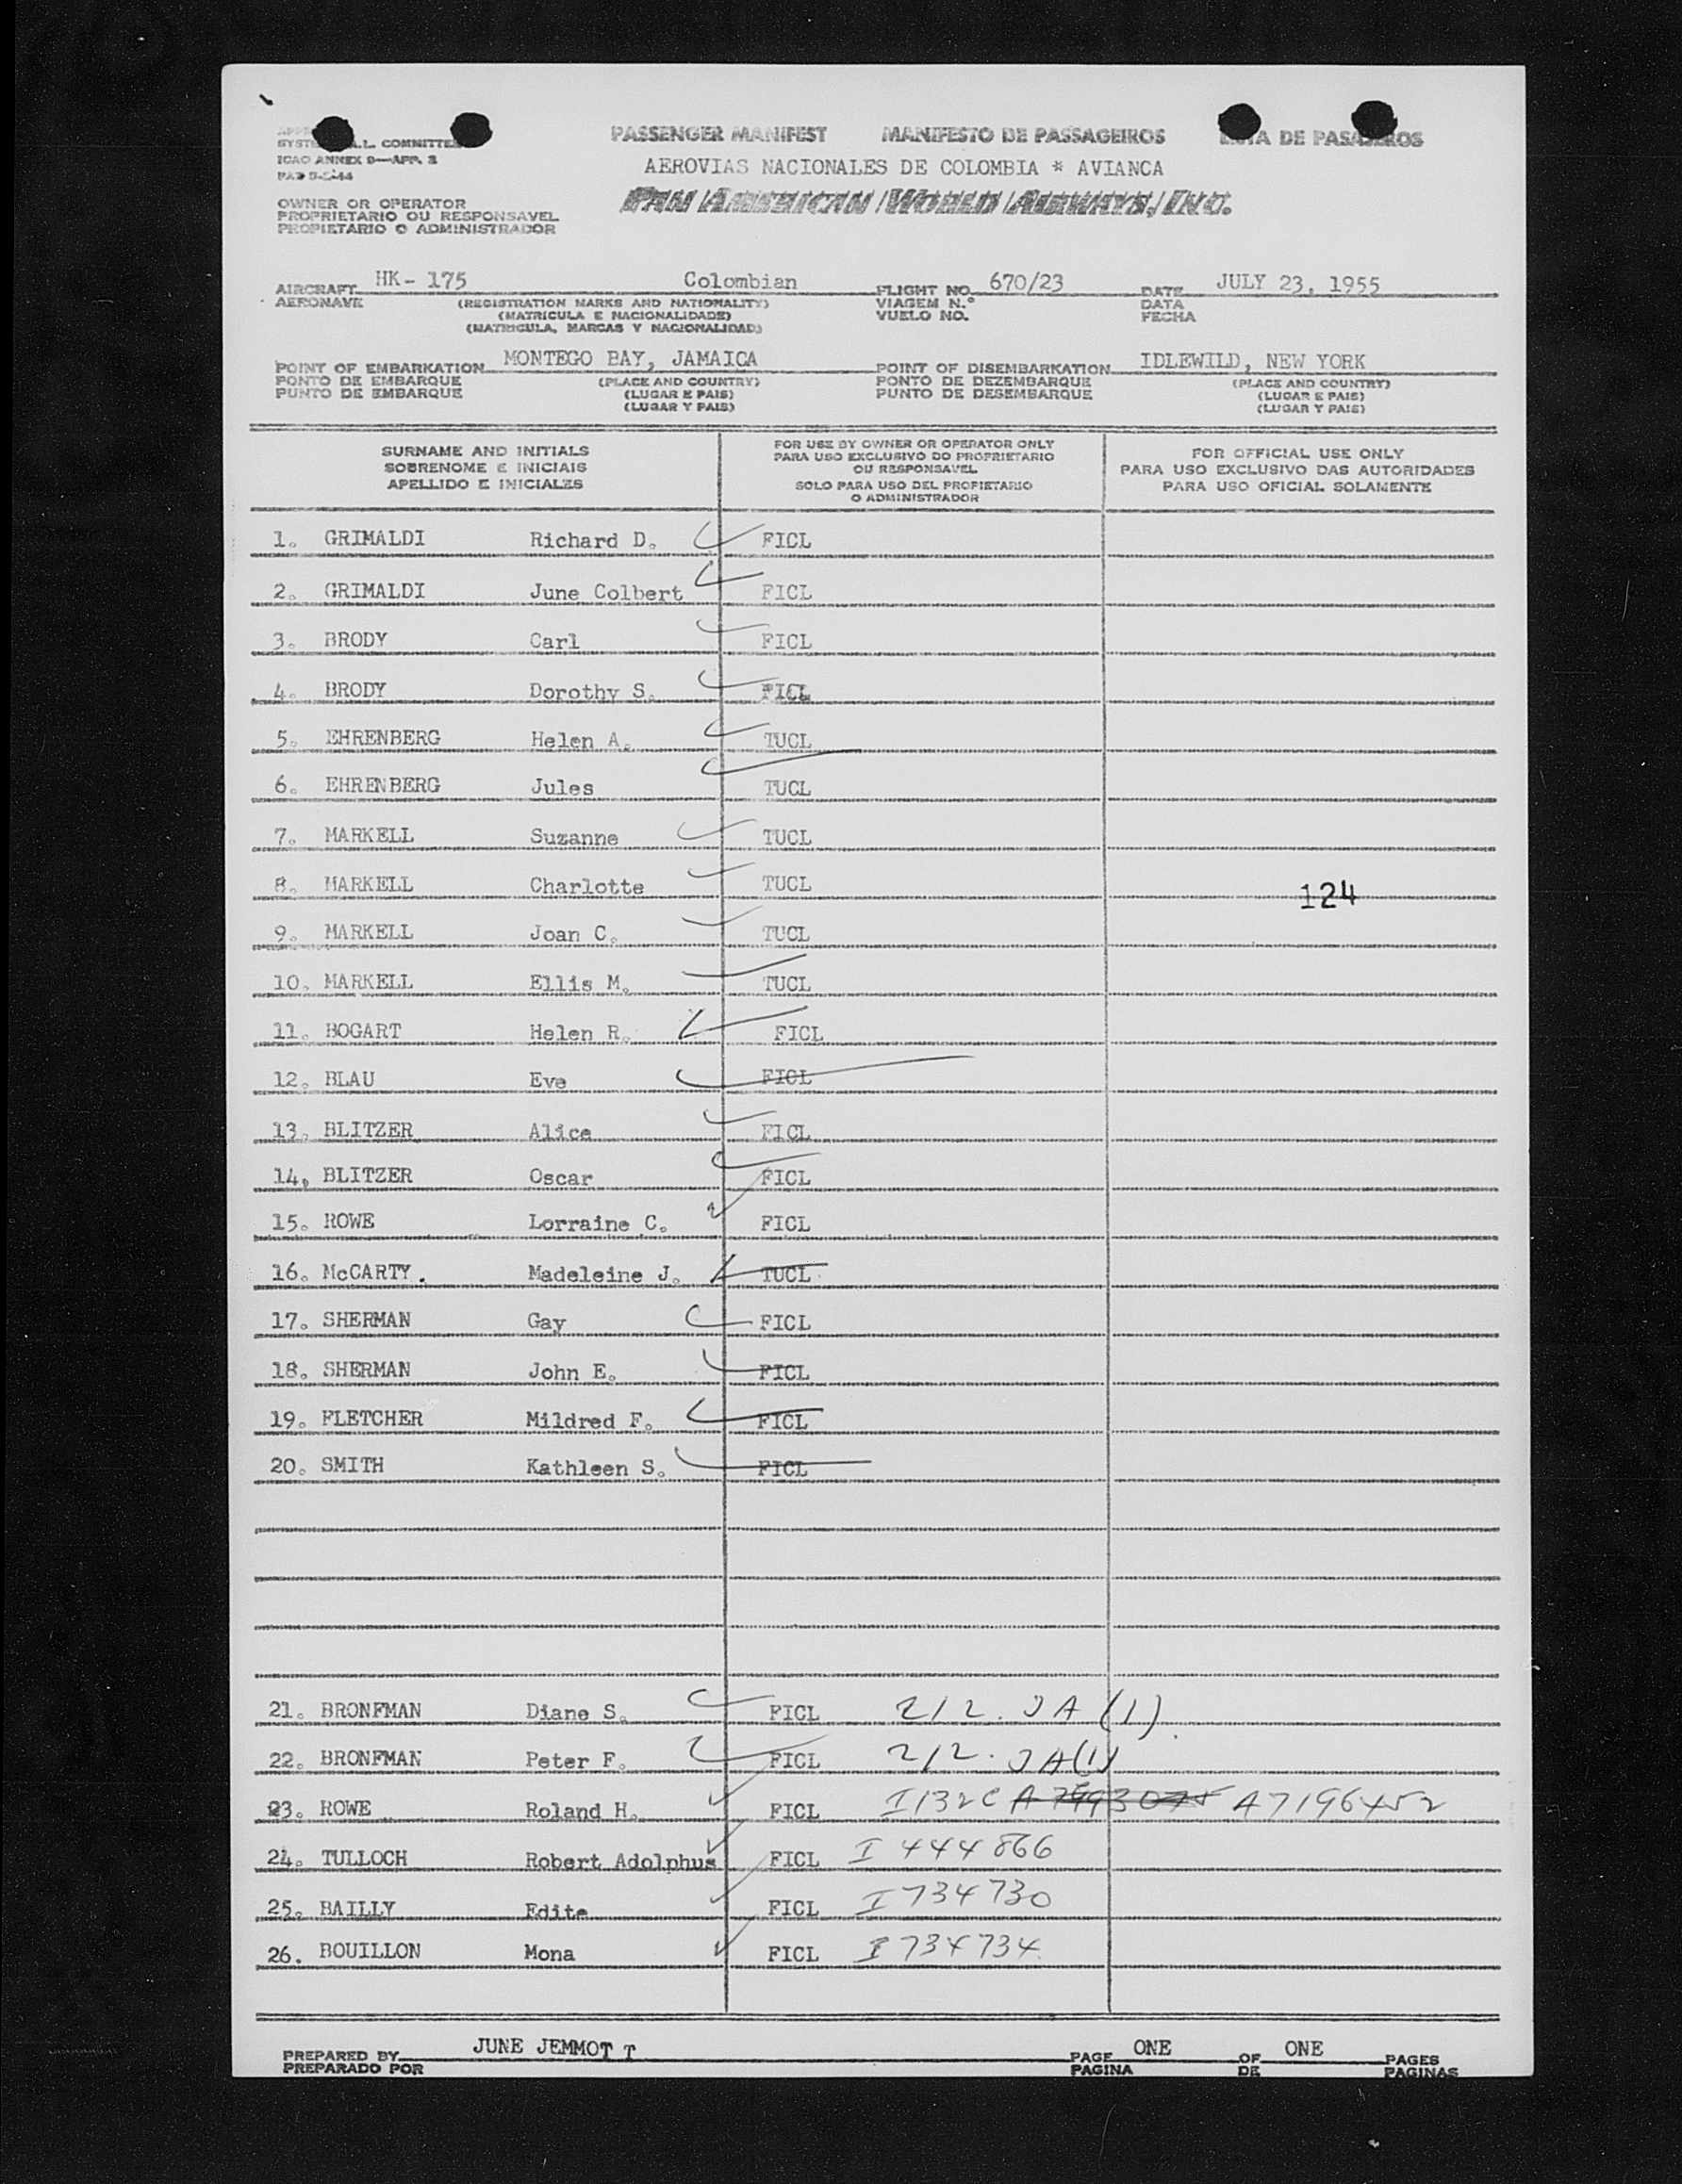 PASSENGER MANIFEST MANIFESTO DE PASSAGEIROS DE PASAJEROS
COMMITTEE
ICAO ANNEX 9—APP. 3
AEROVIAS NACIONALES DE COLOMBIA * AVIANCA
PAN AMERICAN WORLD AIRWAYS, INC.
OWNER OR OPERATOR
PROPRIETARIO OU RESPONSAVEL
PROPIETARIO O ADMINISTRADOR
AIRCRAFT HK- 175 Colombian FLIGHT NO. 670/23 DATE JULY 23, 1955
AERONAVE (REGISTRATION MARKS AND NATIONALITY) VIAGEM N.° DATA
(MATRICULA E NACIONALIDADE) VUELO NO. FECHA
(MATRICULA, MARCAS Y NACIONALIDAD)
POINT OF EMBARKATION MONTEGO BAY, JAMAICA POINT OF DISEMBARKATION IDLEWILD, NEW YORK
PONTO DE EMBARQUE (PLACE AND COUNTRY) PONTO DE DEZEMBARQUE (PLACE AND COUNTRY)
PUNTO DE EMBARQUE (LUGAR E PAIS) PUNTO DE DESEMBARQUE (LUGAR E PAIS)
(LUGAR Y PAIS) (LUGAR Y PAIS)
SURNAME AND INITIALS
SOBRENOME E INICIAIS
APELLIDO E INICIALES
FOR USE BY OWNER OR OPERATOR ONLY
PARA USO EXCLUSIVO DO PROPRIETARIO
OU RESPONSAVEL
SOLO PARA USO DEL PROPIETARIO
O ADMINISTRADOR
FOR OFFICIAL USE ONLY
PARA USO EXCLUSIVO DAS AUTORIDADES
PARA USO OFICIAL SOLAMENTE
1. GRIMALDI Richard D. FICL
2. GRIMALDI June Colbert FICL
3. BRODY Carl FICL
4. BRODY Dorothy S. FICL
5. EHRENBERG Helen A. TUCL
6. EHRENBERG Jules TUCL
7. MARKELL Suzanne TUCL
8. MARKELL Charlotte TUCL 124
9. MARKELL Joan C. TUCL
10. MARKELL Ellis M. TUCL
11. BOGART Helen R. FICL
12. BLAU Eve FICL
13. BLITZER Alice FICL
14. BLITZER Oscar FICL
15. ROWE Lorraine C. FICL
16. McCARTY. Madeleine J. TUCL
17. SHERMAN Gay FICL
18. SHERMAN John E. FICL
19. FLETCHER Mildred F. FICL
20. SMITH Kathleen S. FICL
21. BRONFMAN Diane S. FICL 212. JA (1)
22. BRONFMAN Peter F. FICL 212. JA(1)
23. ROWE Roland H. FICL I132C A7196452
24. TULLOCH Robert Adolphus FICL I 444866
25. BAILLY Edite FICL I734730
26. BOUILLON Mona FICL I734734
PREPARED BY JUNE JEMMOTT PAGE ONE OF ONE PAGES
PREPARADO POR PAGINA DE PAGINAS